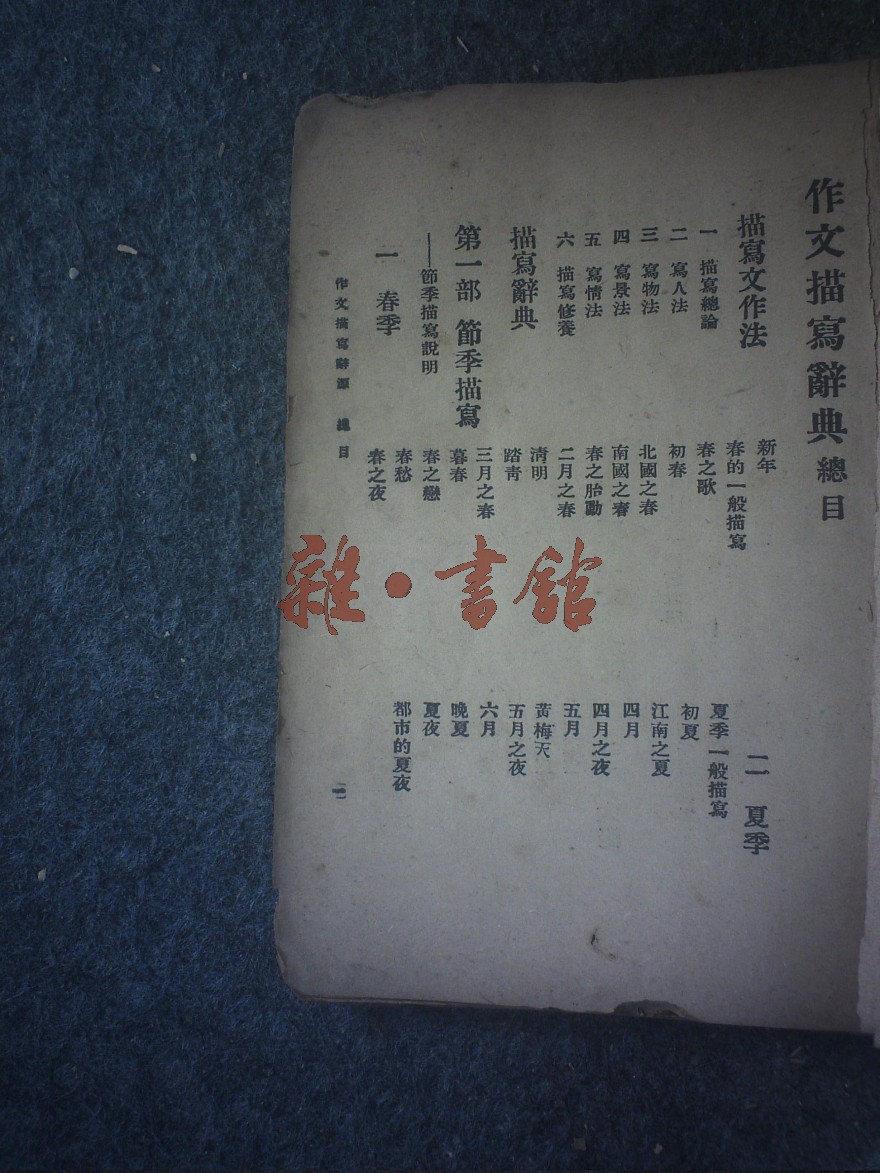 作文描寫辭典總目
描寫文作法
一 描寫總論
二 寫人法
三 寫物法
四 寫景法
五 寫情法
六 描寫修養
描寫辭典
第一部 節季描寫
——節季描寫說明
一 春季
新年
春的一般描寫
春之歌
初春
北國之春
南國之春
春之胎動
二月之春
清明
踏青
三月之春
暮春
春之戀
春愁
春之夜
二 夏季
夏季一般描寫
初夏
江南之夏
四月
四月之夜
五月
黃梅天
五月之夜
六月
晚夏
夏夜
都市的夏夜
作文描寫辭源 總目
雜·書館